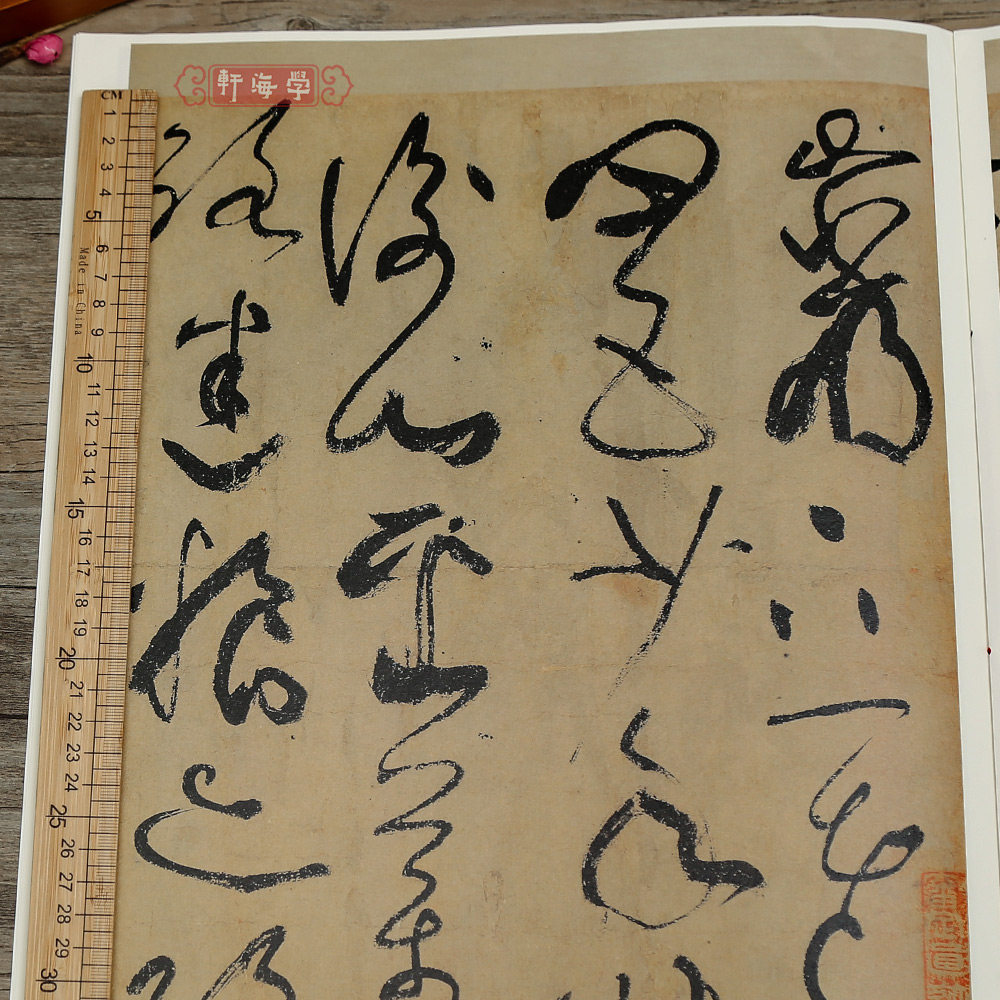 軒海學
嚴下一老
四五少年
衡山采藥
路迷糧亦
CM 1 2 3 4 5 6 7 8 9 10 11 12 13 14 15 16 17 18 19 20 21 22 23 24 25 26 27 28 29 30
Made in China